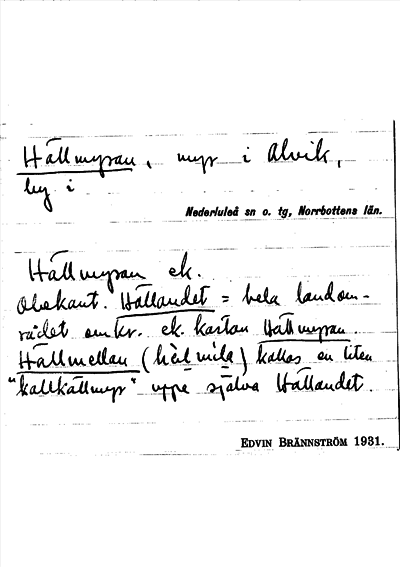 Hällmyran, myr i Alvik,
by i
Nederluleå sn o. tg, Norrbottens län.
Hällmyran ek.
Obekant. Hällandet = hela landom-
rådet omkr. ek. kartan Hällmyran.
Hällmellan (hèlmila) kallas en liten
"kallkällmyr" uppe själva Hällandet.
EDVIN BRÄNNSTRÖM 1931.